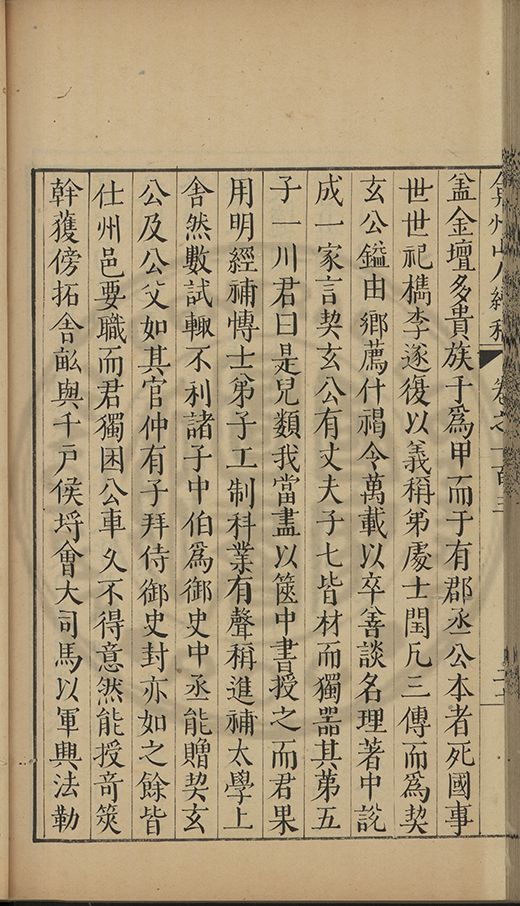 弇州山人續稿 卷之一百三
盖金壇多貴族于爲甲而于有郡丞公本者死國事
世世祀檇李遂復以義稱弟處士閏凡三傳而爲契
玄公鎰由鄉薦什褐令萬載以卒善談名理著中說
成一家言契玄公有丈夫子七皆材而獨器其第五
子一川君曰是兒類我當盡以篋中書授之而君果
用明經補博士弟子工制科業有聲稱進補太學上
舍然數試輙不利諸子中伯爲御史中丞能贈契玄
公及公父如其官仲有子拜侍御史封亦如之餘皆
仕州邑要職而君獨困公車久不得意然能授竒筴
幹獲傍拓舍畝與千戶侯埒會大司馬以軍興法勒